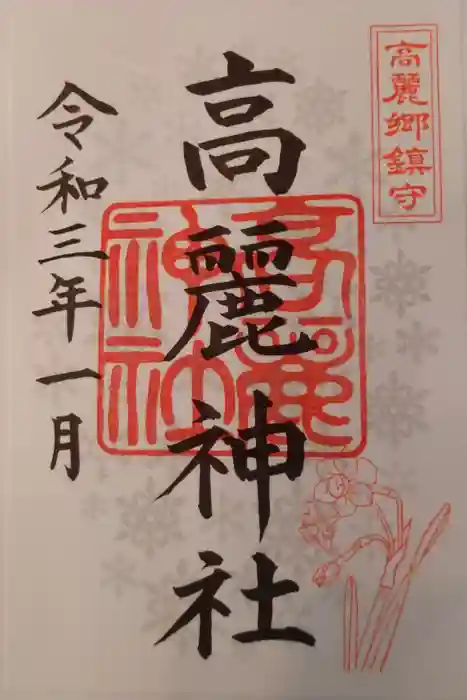 高麗郷鎮守
高麗神社
高麗
神社
令和三年一月